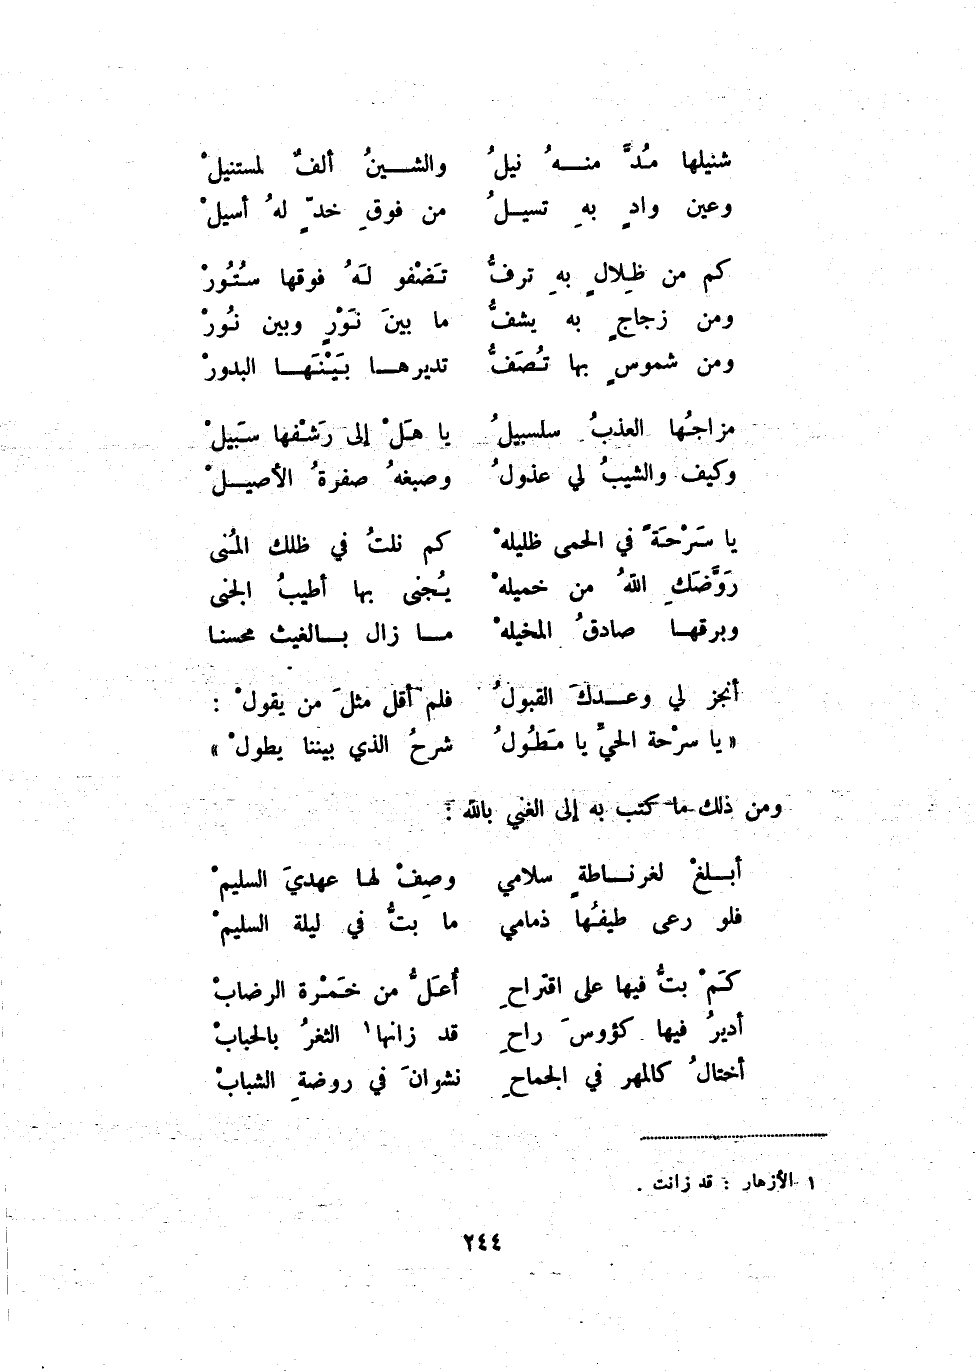 شنيلها مُدَّ منهُ نيلُ والشينُ ألفٌ لمستنيلْ
وعين وادٍ بهِ تسيلُ من فوقِ خدٍّ لهُ أسيلْ
كم من ظِلالٍ بهِ ترفُّ تَضْفو لَهُ فوقها ستُورْ
ومن زجاجٍ به يشفُّ ما بينَ نَوْرٍ وبين نُورْ
ومن شموسٍ بها تُصَفُّ تديرها بَيْنَها البدورْ
مزاجُها العذبُ سلسبيلُ يا هَلْ إلى رَشْفها سَبيلْ
وكيف والشيبُ لي عذولُ وصبغهُ صفرةُ الأصيلْ
يا سَرْحَةً في الحمى ظليلهْ كم نلتُ في ظلك المُنى
رَوَّضَكِ اللهُ من خميلهْ يُجنى بها أطيبُ الجنى
وبرقها صادقُ المخيلهْ ما زال بالغيث محسنا
أنجز لي وعدكَ القبولُ فلم أقل مثلَ من يقولْ :
« يا سرْحة الحيِّ يا مَطُولُ شرحُ الذي بيننا يطولْ »
ومن ذلك ما كتب به إلى الغني بالله :
أبلغْ لغرناطةٍ سلامي وصِفْ لها عهديَ السليمْ
فلو رعى طيفُها ذمامي ما بتُّ في ليلة السليمْ
كَمْ بتُّ فيها على اقتراحِ أُعَلُّ من خَمْرة الرضابْ
أديرُ فيها كؤوسَ راحِ قد زانها١ الثغرُ بالحبابْ
أختالُ كالمهر في الجماحِ نشوانَ في روضةِ الشبابْ
١ الأزهار : قد زانت .
٢٤٤